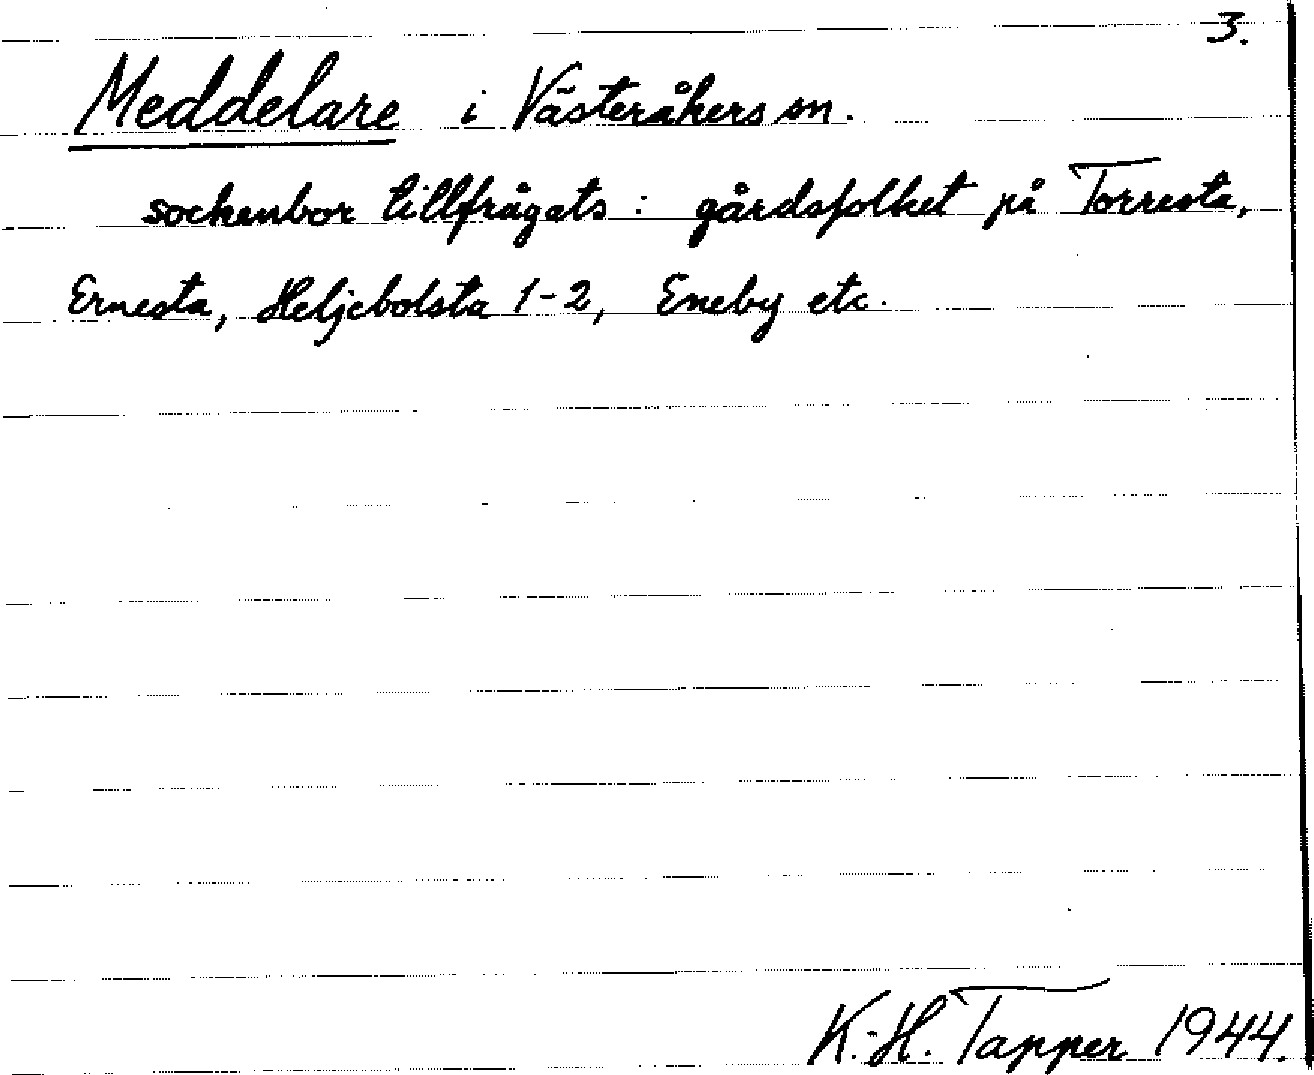 3.
Meddelare i Västeråkers sn.
sockenbor tillfrågats : gårdsfolket på Torresta,
Ernesta, Heljebolsta 1-2, Eneby etc.
K.-H. Tapper 1944.